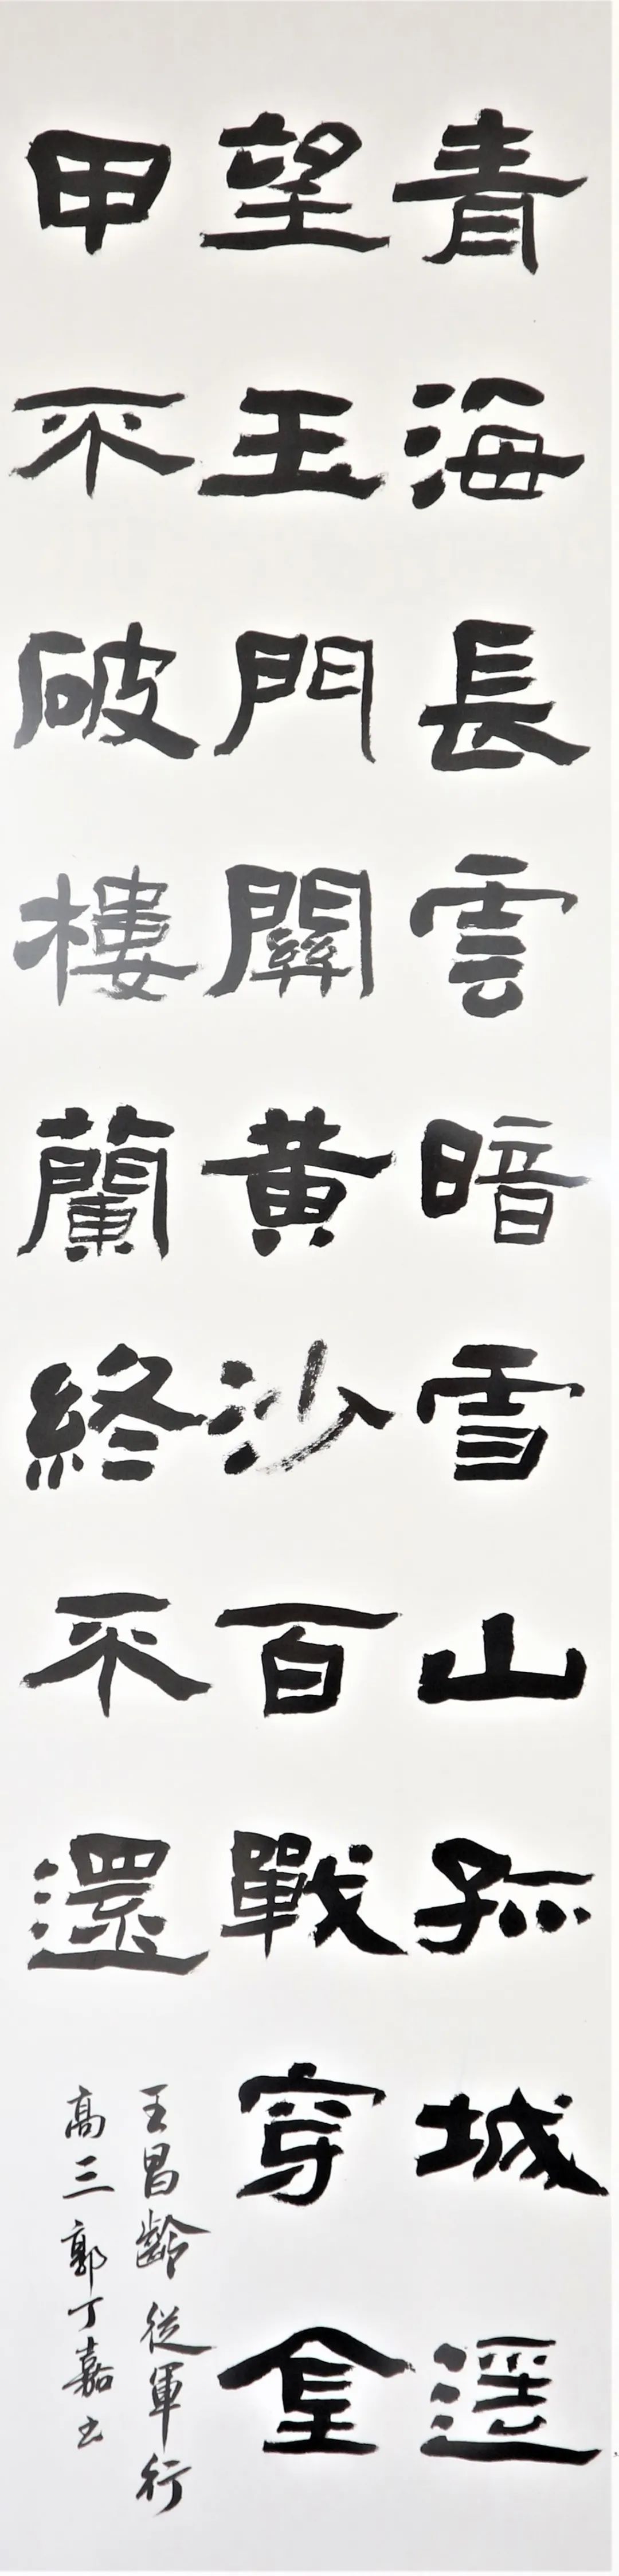 青海長雲暗雪山孤城遥
望玉門關黃沙百戰穿金
甲不破樓蘭終不還
王昌齡從軍行
高三郭丁嘉书